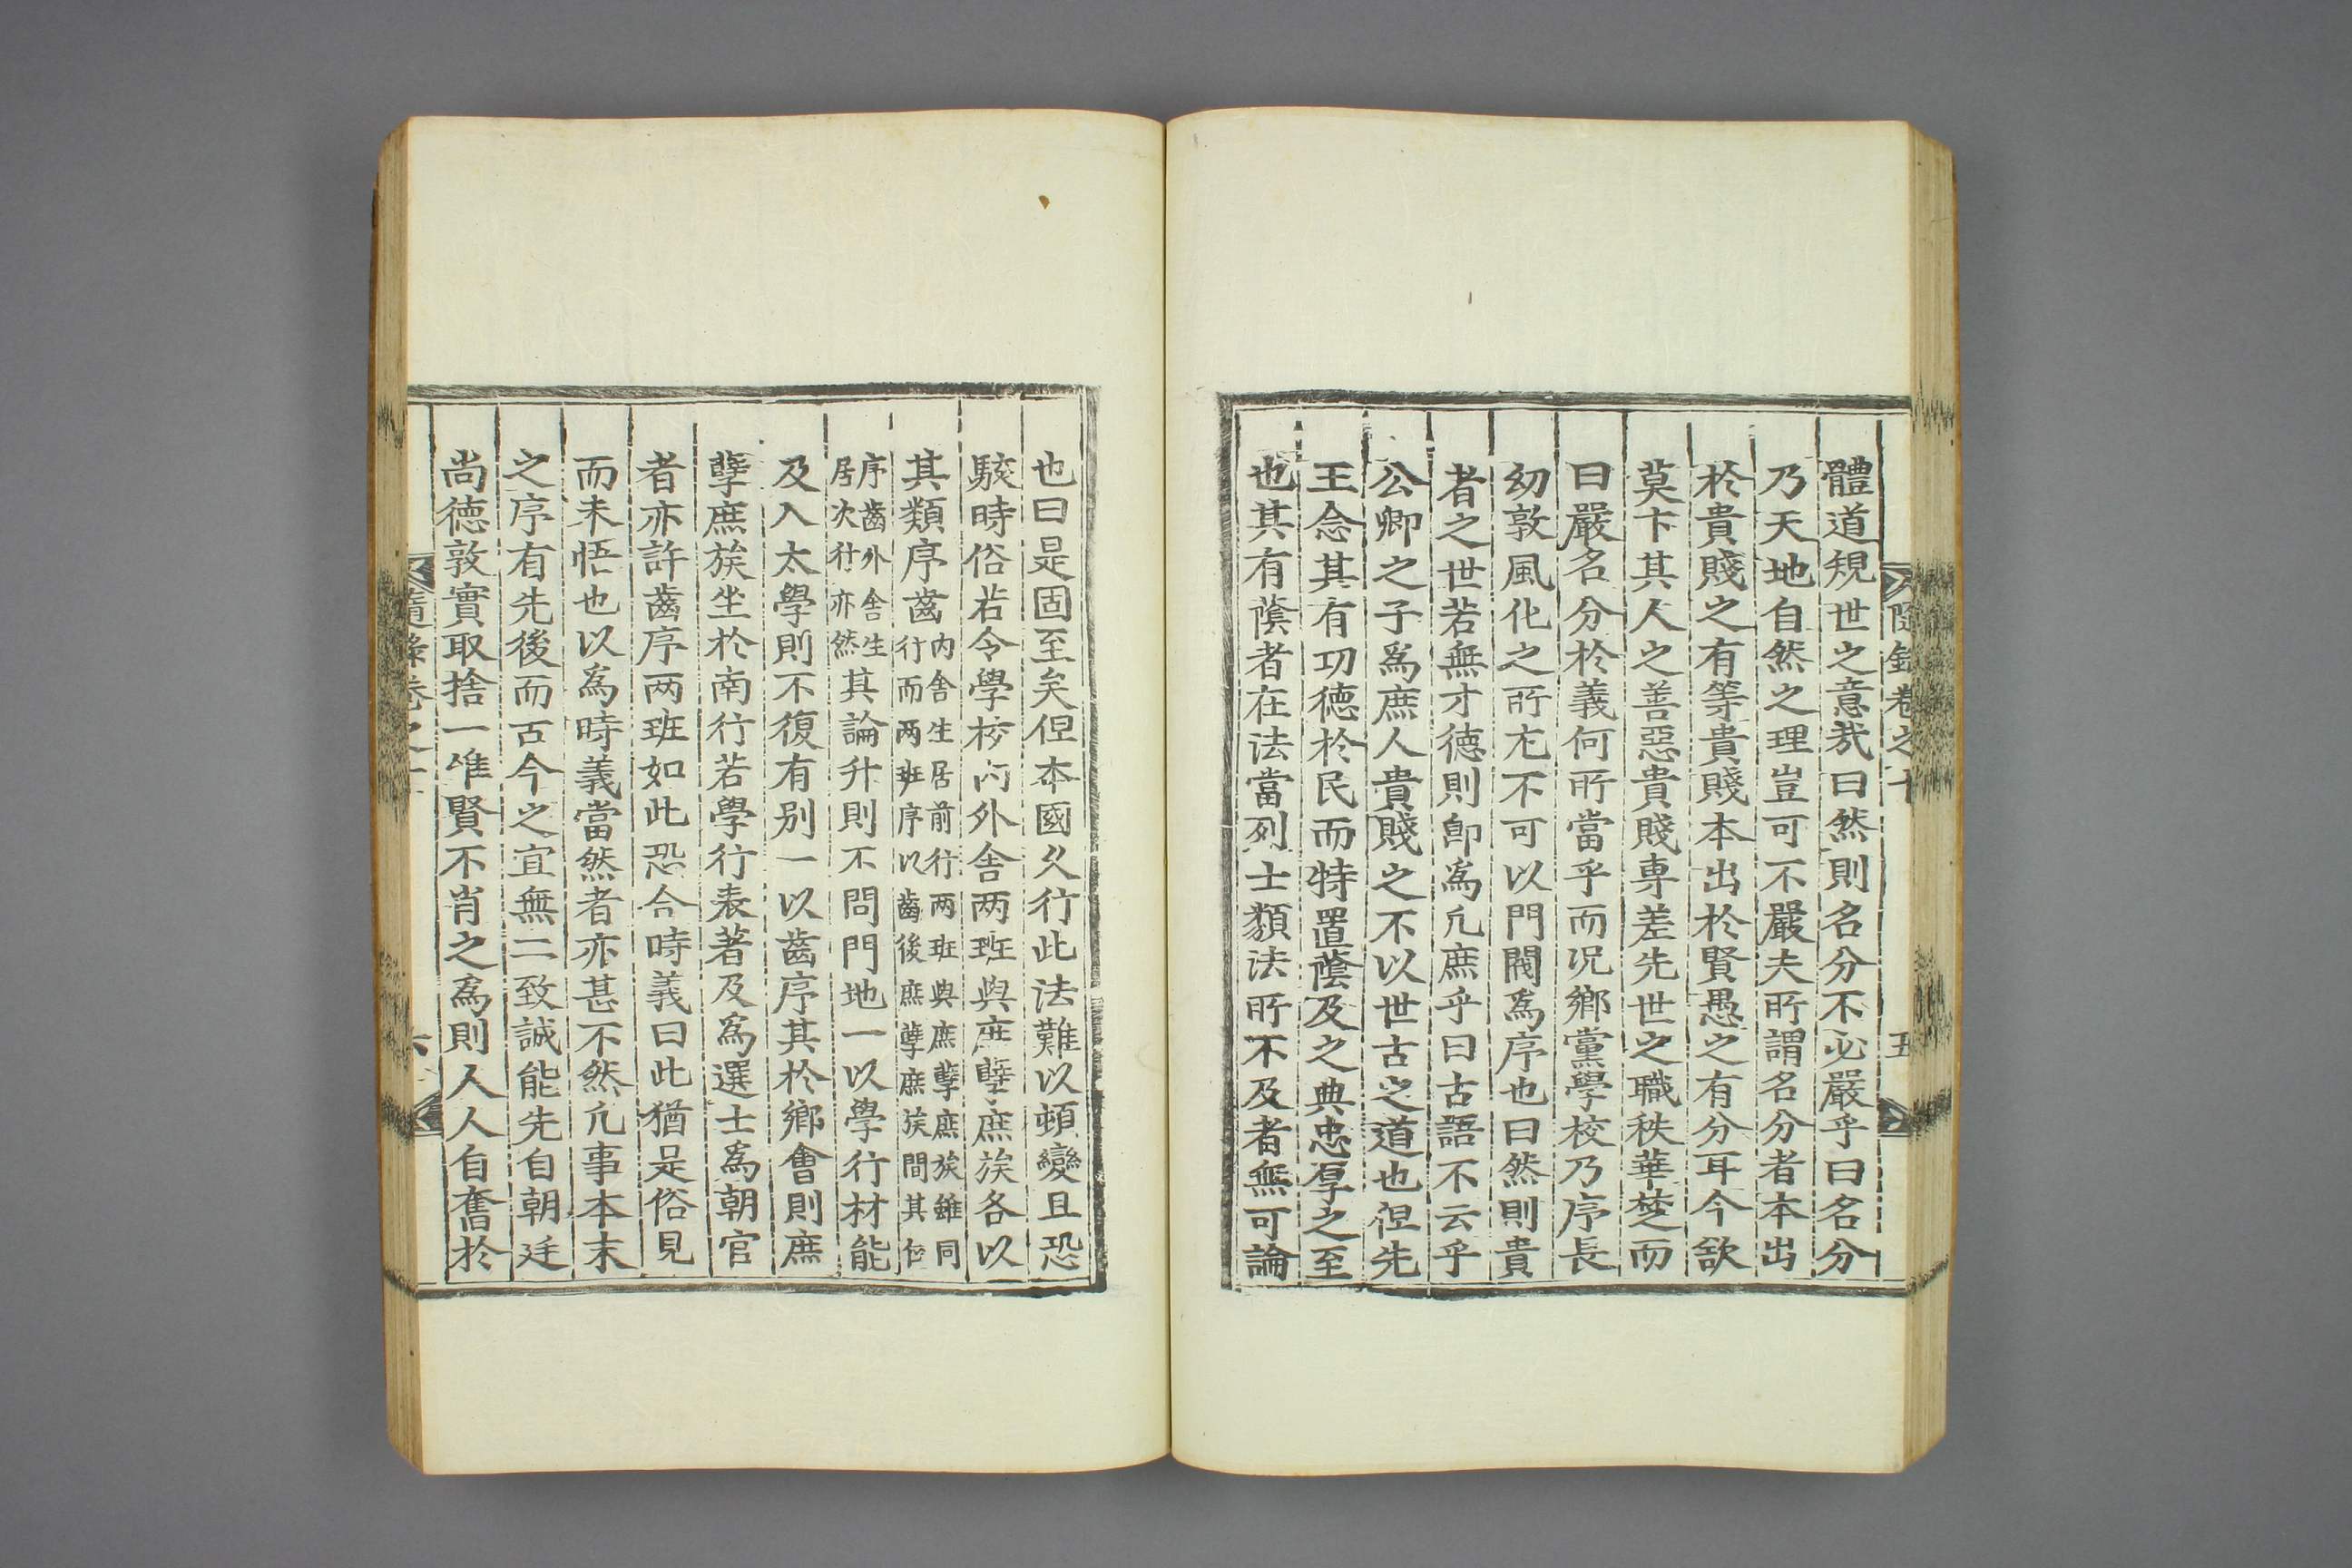 隨錄卷之十
五
體道規世之意哉曰然則名分不必嚴乎曰名分
乃天地自然之理豈可不嚴夫所謂名分者本出
於貴賤之有等貴賤本出於賢愚之有分耳今欲
莫卞其人之善惡貴賤專差先世之職秩華楚而
曰嚴名分於義何所當乎而况鄕黨學校乃序長
幼敦風化之所尤不可以門閥爲序也曰然則貴
者之世若無才德則卽爲凡庶乎曰古語不云乎
公卿之子爲庶人貴賤之不以世古之道也但先
王念其有功德於民而特置蔭及之典忠厚之至
也其有蔭者在法當列士類法所不及者無可論
也曰是固至矣但本國久行此法難以頓變且恐
駭時俗若令學校內外舍两班與庶孼庶族各以
其類序齒內舍生居前行两班與庶孼庶族雖同
行而两班序以齒後庶孼庶族間其位
序齒外舍生
居次行亦然其論升則不問門地一以學行材能
及入太學則不復有别一以齒序其於鄕會則庶
孼庶族坐於南行若學行表著及爲選士爲朝官
者亦許齒序两班如此恐合時義曰此猶是俗見
而未悟也以爲時義當然者亦甚不然凡事本末
之序有先後而古今之宜無二致誠能先自朝廷
尚德敦實取捨一唯賢不肖之爲則人人自奮於
隨錄卷之十
六